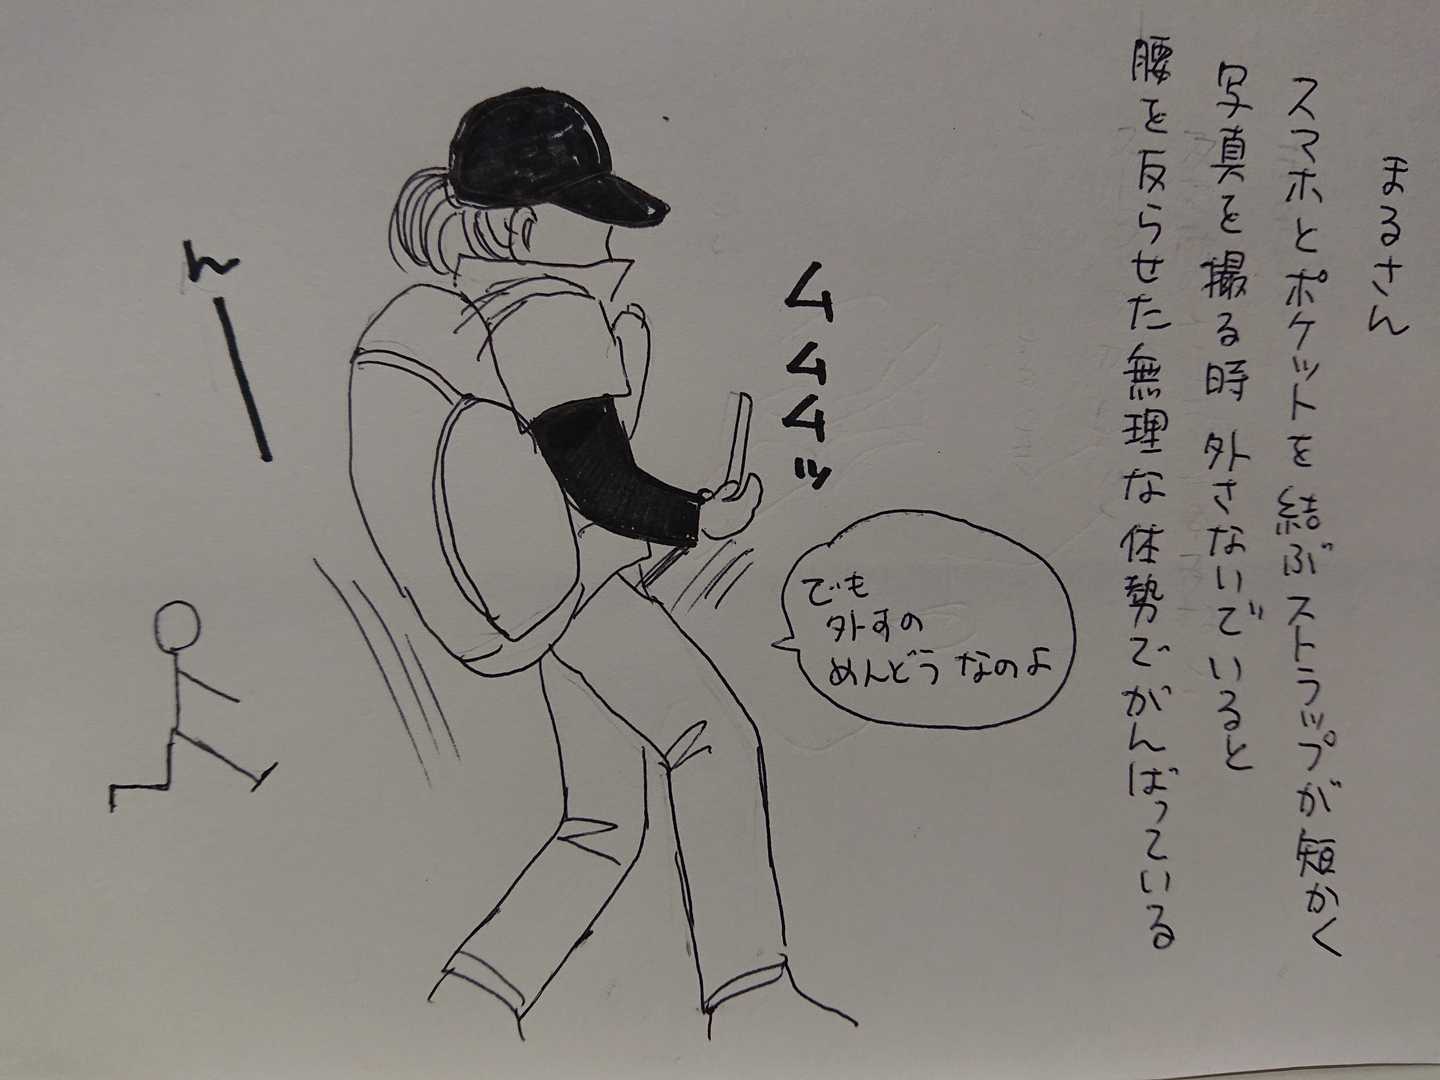 まるさん
スマホとポケットを結ぶストラップが短かく
写真を撮る時 外さないでいると
腰を反らせた無理な体勢でがんばっている
ムムムッ
でも
外すの
めんどうなのよ
んー